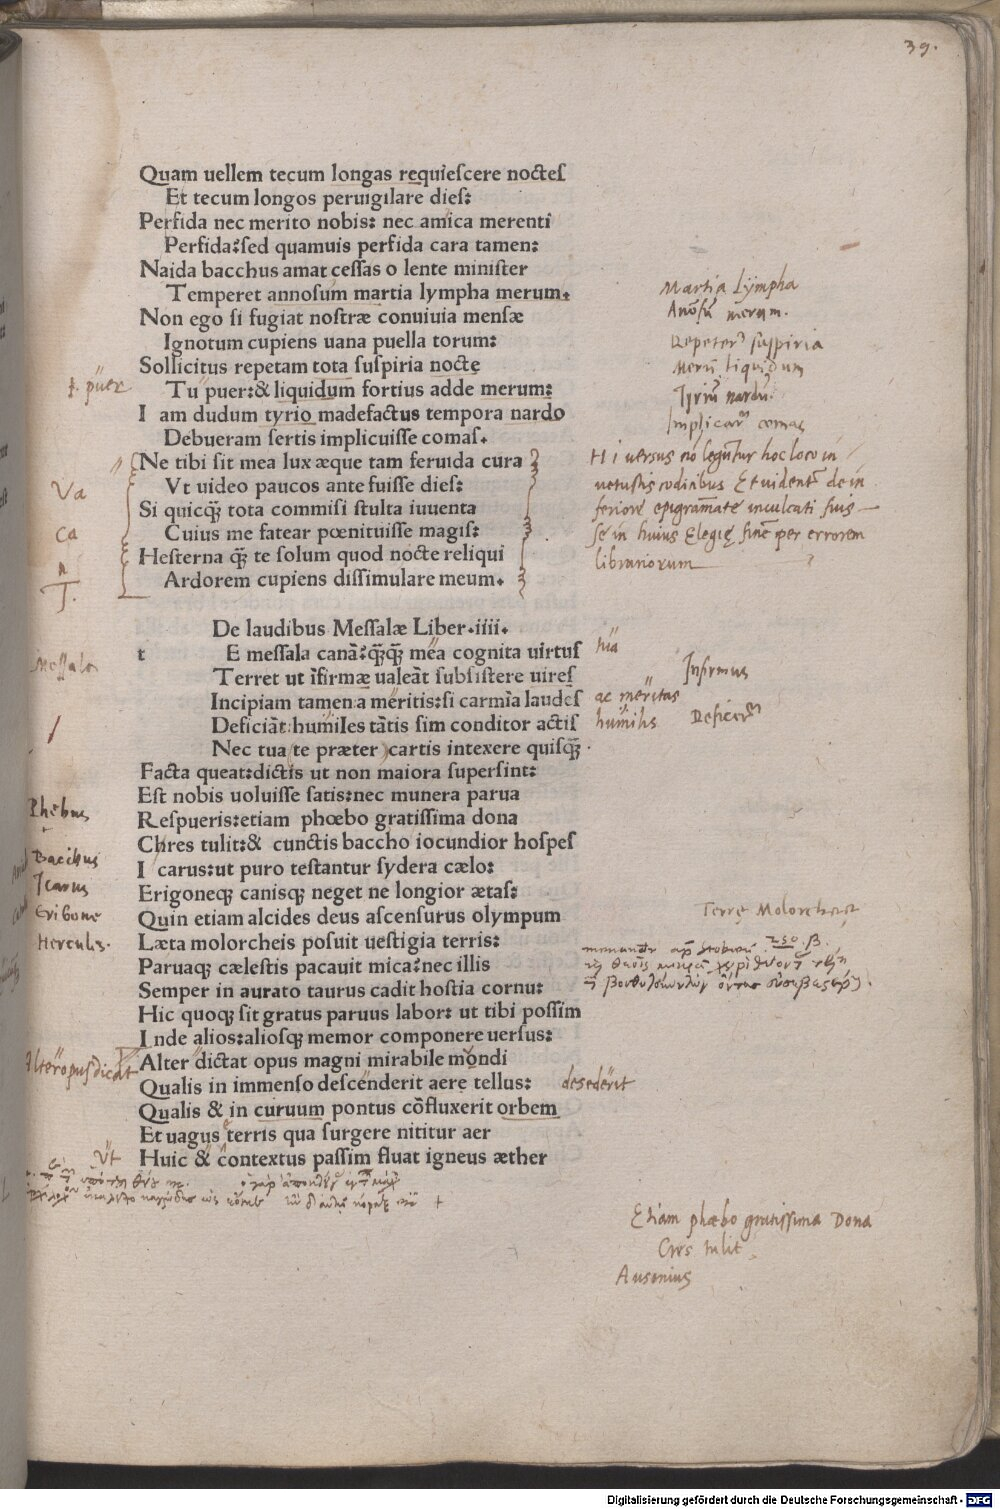 39.
Quam uellem tecum longas requieſcere nocteſ
Et tecum longos peruigilare dieſ:
Perfida nec merito nobis: nec amica merenti
Perfida:ſed quamuis perfida cara tamen:
Naida bacchus amat ceſſas o lente miniſter
Temperet annoſum martia lympha merum.
Non ego ſi fugiat noſtræ conuiuia menſæ
Ignotum cupiens uana puella torum:
Sollicitus repetam tota ſuſpiria nocte
Tu puer:& liquidum fortius adde merum:
I am dudum tyrio madefactus tempora nardo
Debueram ſertis implicuiſſe comaſ.
Ne tibi ſit mea lux æque tam feruida cura
Vt uideo paucos ante fuiſſe dieſ:
Si quicq̃ tota commiſi ſtulta iuuenta
Cuius me fatear pœnituiſſe magiſ:
Heſterna q̃ te ſolum quod nocte reliqui
Ardorem cupiens diſſimulare meum.
Martia Lympha
Anōſū merum.
Repeter᷑ ſuſpiria
Merū liquidum
Tyriū nardū
Implicar᷑ comas
Va
ca
n
T.
Hi uersus nō legunt᷑ hoc loco in
uetustis codicibus Et uident᷑ de in
feriore epigrāmate inculcati fuiſ
ſe in huius Elegię fine per errorem
librariorum
De laudibus Meſſalæ Liber.iiii.
t E meſſala canā:q̃q̃ mea cognita uirtuſ
Terret ut īfirmæ ualeāt ſubſiſtere uireſ
Incipiam tamen a meritis:ſi carmīa laudeſ
Deficiāt:humiles tātis ſim conditor actiſ
Nec tua te præter cartis intexere quiſq̃
Facta queat:dictis ut non maiora ſuperſint:
Eſt nobis uoluiſſe ſatis:nec munera parua
Reſpueris:etiam phœbo gratiſſima dona
Chres tulit:& cunctis baccho iocundior hoſpeſ
I carus:ut puro teſtantur ſydera cælo:
Erigoneq; canisq; neget ne longior ætaſ:
Quin etiam alcides deus aſcenſurus olympum
Læta molorcheis poſuit ueſtigia terris:
Paruaq; cæleſtis pacauit mica:nec illis
Semper in aurato taurus cadit hoſtia cornu:
Hic quoq; ſit gratus paruus labor: ut tibi poſſim
I nde alios:alioſq; memor componere uerſus:
Alter dictat opus magni mirabile mondi
Qualis in immenſo deſcenderit aere tellus:
Qualis & in curuum pontus cōfluxerit orbem
Et uagus terris qua ſurgere nititur aer
Huic & contextus paſſim fluat igneus æther
Meſſala
Infirmus
ac meritas
humilis
Deficer᷑
Phebus
Bacchus
Icarus
Erigone
Hercules.
Terrę
deſederit
Vt
Etiam phœbo gratissima Dona
Cres tulit
Ausonius
Digitalisierung gefördert durch die Deutsche Forschungsgemeinschaft - DFG